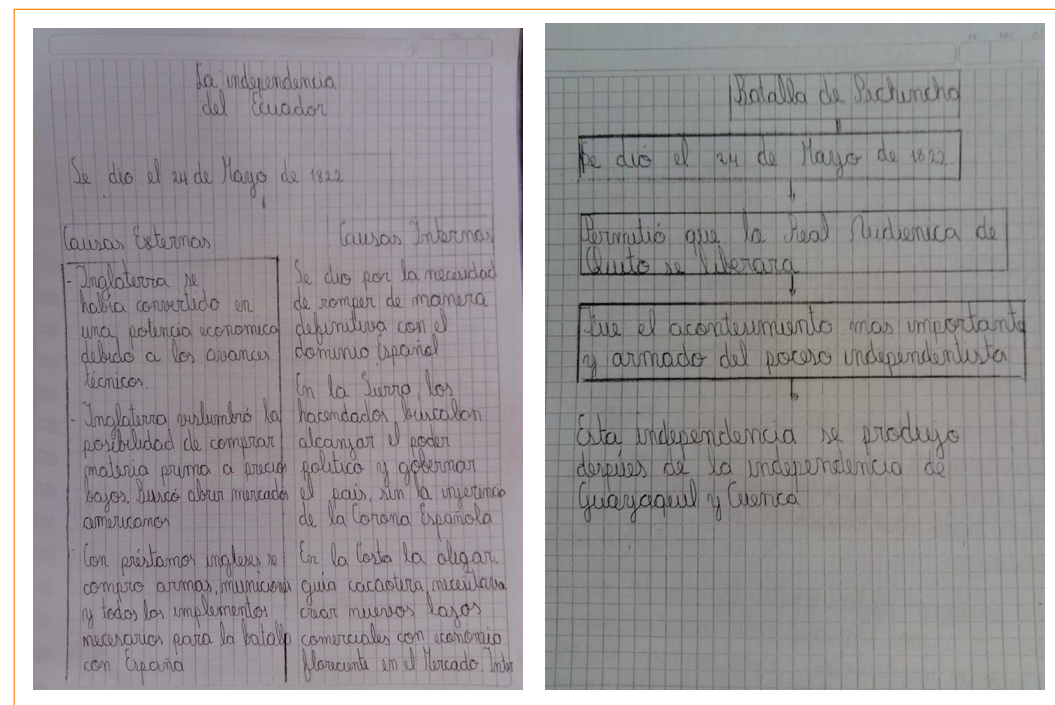 La independencia
del Ecuador
Se dio el 24 de Mayo de 1822
Causas Externas
- Inglaterra se
había convertido en
una potencia economica
debido a los avances
técnicos.
- Inglaterra vislumbró la
posibilidad de comprar
materia prima a precios
bajos. Buscó abrir mercados
americanos
- Con préstamos ingleses se
compro armas, municiones
y todos los implementos
necesarios para la batalla
con España
Causas Internas
Se dio por la necesidad
de romper de manera
definitiva con el
dominio Español
En la Sierra, los
hacendados buscaban
alcanzar el poder
politico y gobernar
el país, sin la injerencia
de la Corona Española
En la Costa la oligar
quia cacaotera, necesitaba
crear nuevos lazos
comerciales con economia
floreciente en el Mercado. Inter
Batalla de Pichincha
Se dió el 24 de Mayo de 1822.
Permitió que la Real Audienica de
Quito se liberara
Fue el acontecimiento mas importante
y armado del poceso independentista
Esta independencia se produjo
despúes de la independencia de
Guayaqeuil y Cuenca